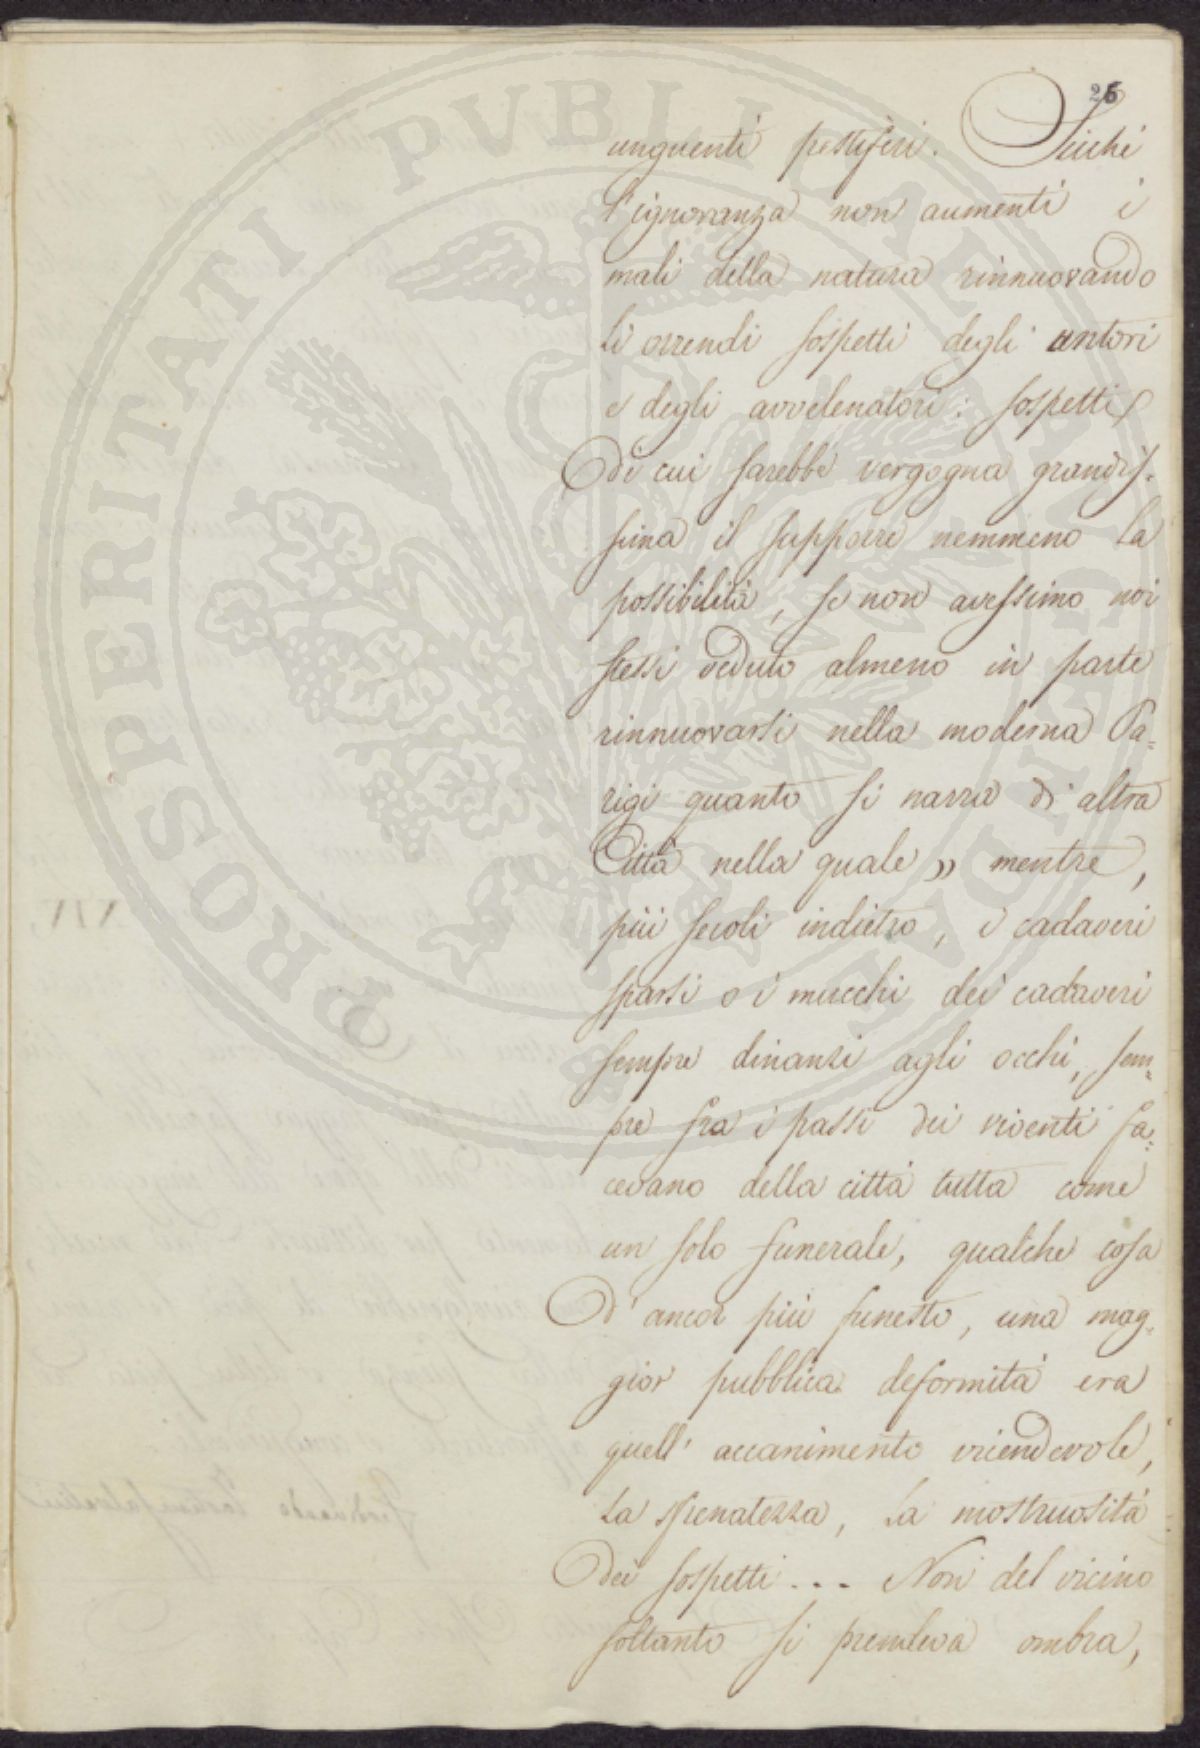 26
unguenti pestiferi. Sicchè
l'ignoranza non aumenti i
mali della natura rinnuovando
li orrendi sospetti degli untori
e degli avvelenatori: sospetti
di cui sarebbe vergogna grandis-
sima il supporre nemmeno la
possibilità, se non avessimo noi
stessi veduto almeno in parte
rinnuovarsi nella moderna Pa=
rigi quanto si narra di altra
Città nella quale " mentre,
più secoli indietro, i cadaveri
sparsi o i mucchi dei cadaveri
sempre dinanzi agli occhi, sem=
pre fra i passi dei viventi fa=
cevano della città tutta come
un solo funerale, qualche cosa
d'ancor più funesto, una mag=
gior pubblica deformità era
quell' accanimento vicendevole,
la sfrenatezza, la mostruosità
dei sospetti... Non del vicino
soltanto si prendeva ombra,
PROSPERITATI PUBLICAE AUGENDAE